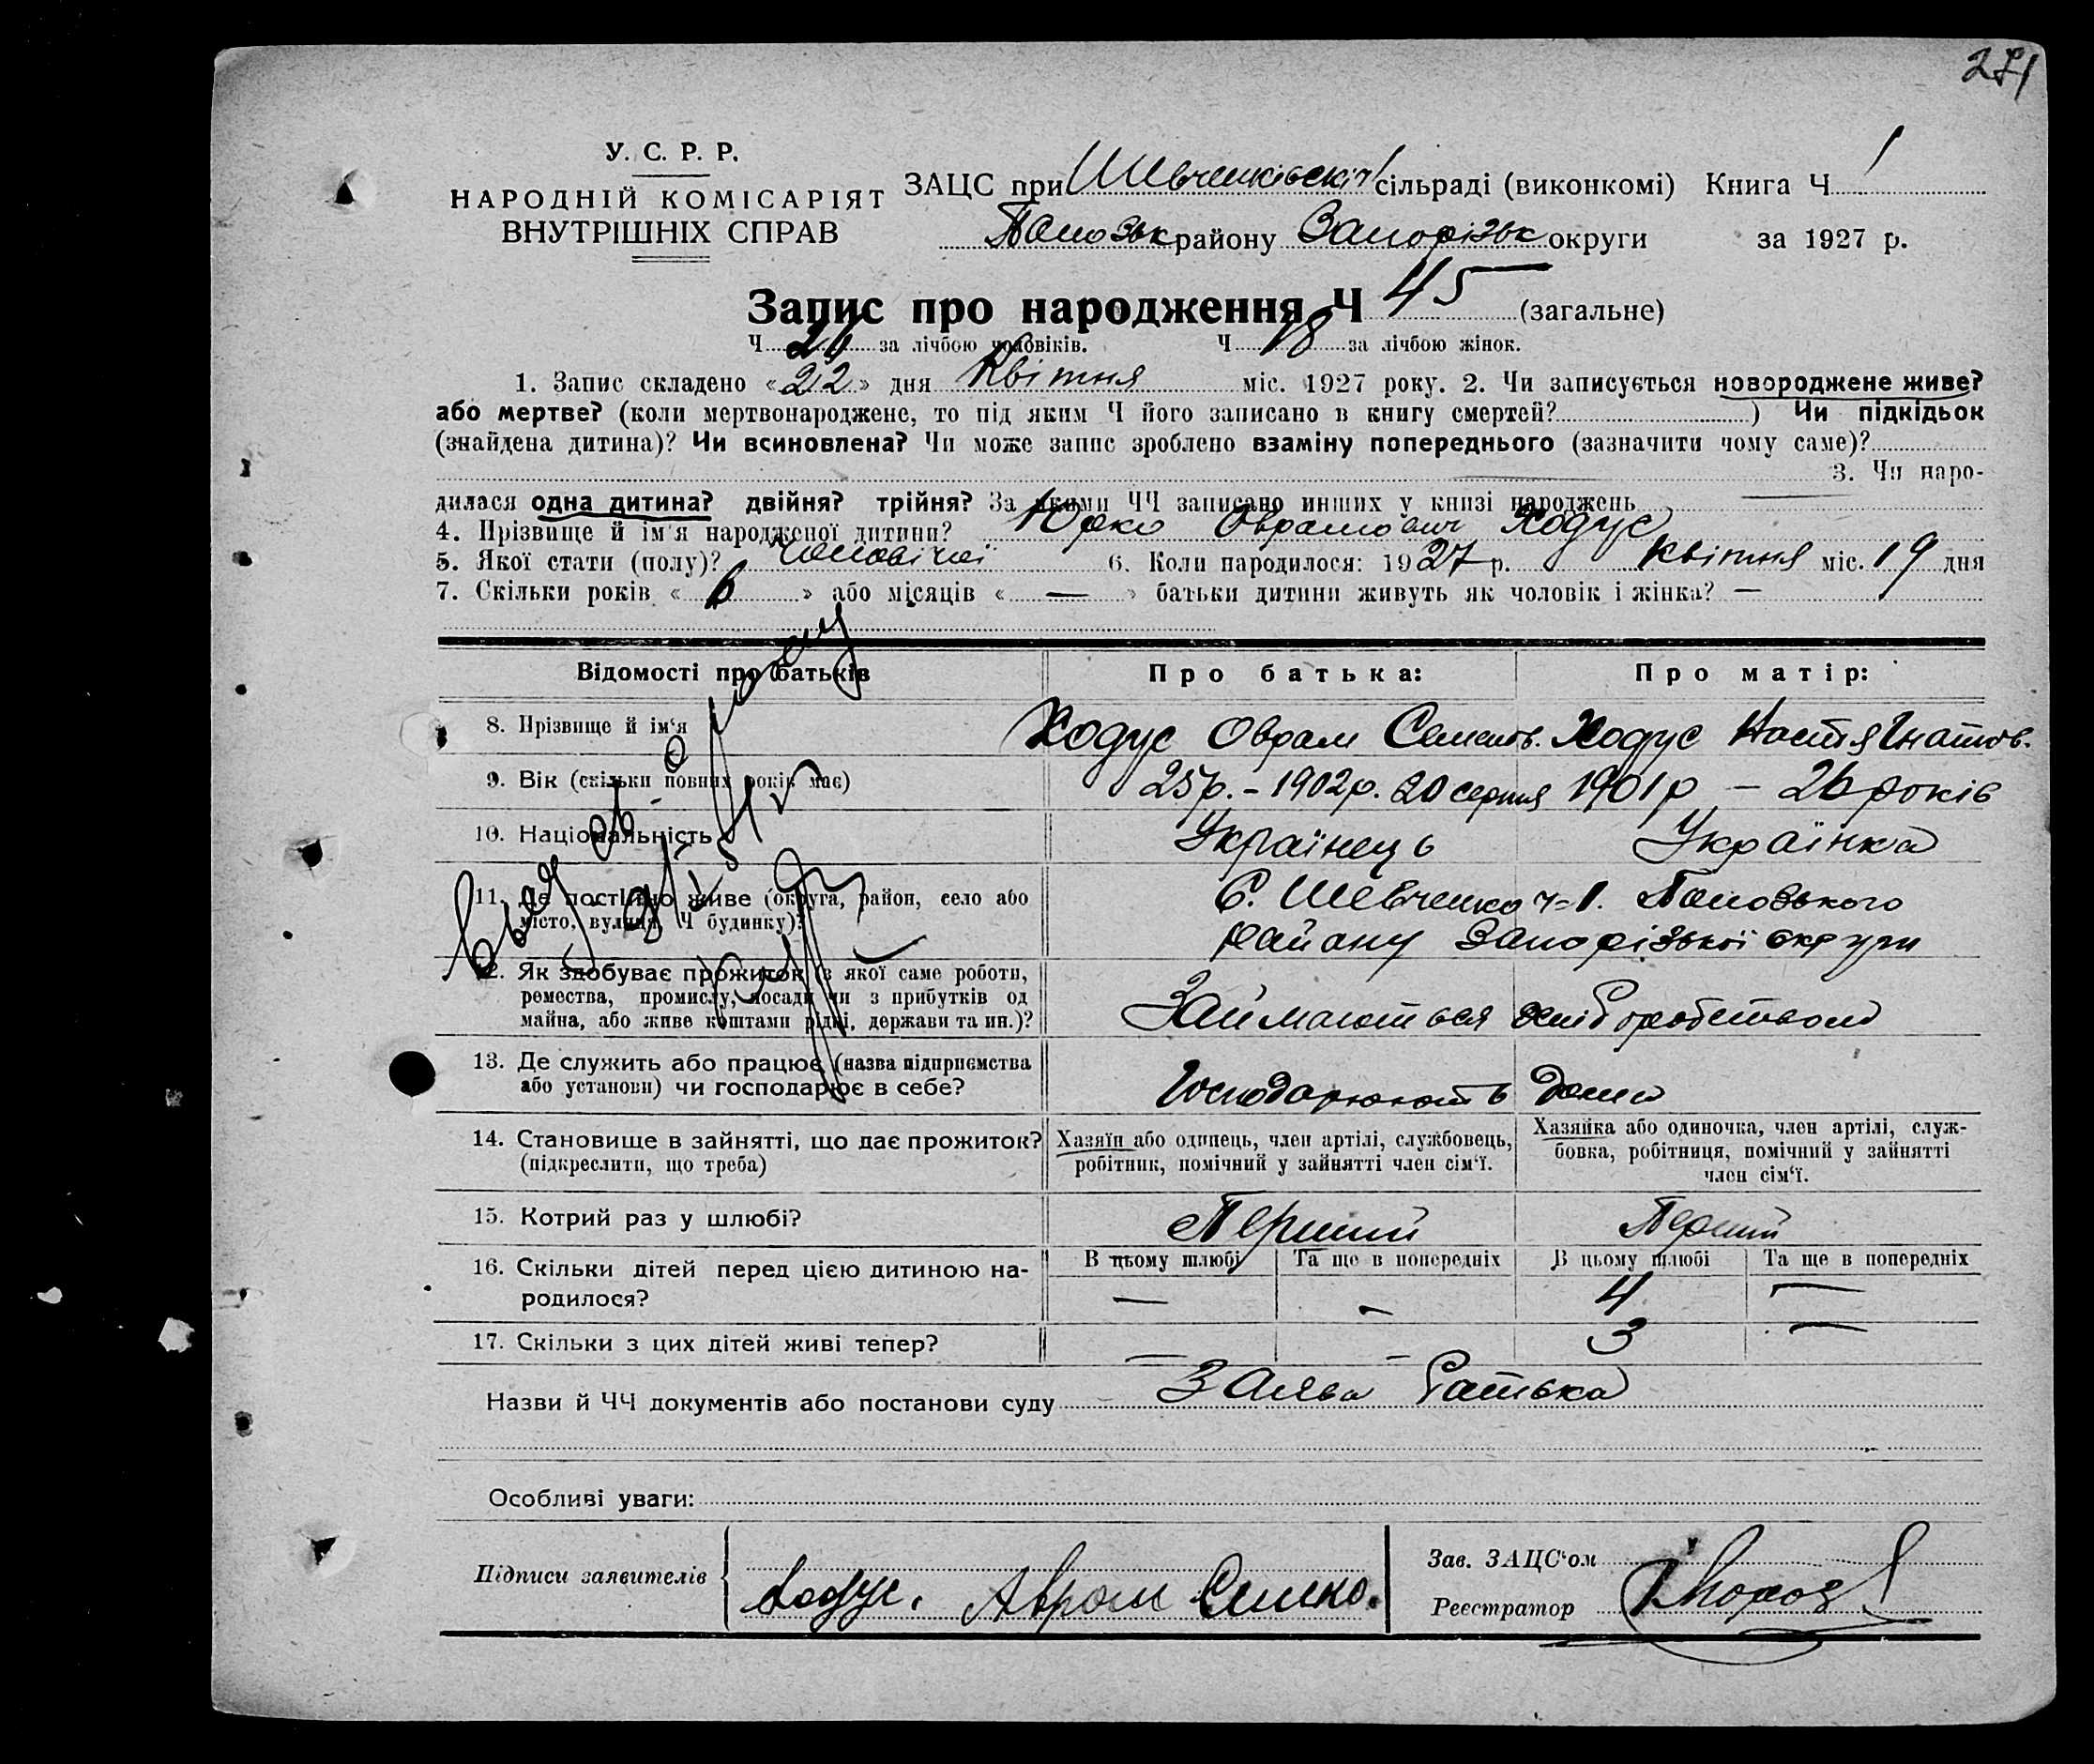 271
У. С. Р. Р.
НАРОДНІЙ КОМІСАРІЯТ
ВНУТРІШНІХ СПРАВ
ЗАЦС при Шевченківскій сільраді (виконкомі) Книга Ч 1
району Запорізьк округи за 1927 р.
Запис про народження Ч 45 (загальне)
Ч за лічбою чоловіків. Ч 18 за лічбою жінок.
1. Запис складено «22» дня Квітня міс. 1927 року. 2. Чи записується новороджене живе?
або мертве? (коли мертвонароджене, то під яким Ч його записано в книгу смертей? ) Чи підкідьок
(знайдена дитина)? Чи всиновлена? Чи може запис зроблено взаміну попереднього (зазначити чому саме)?
3. Чи наро-
дилася одна дитина? двійня? трійня? За якими ЧЧ записано инших у книзі народжень
4. Прізвище й ім'я народженої дитини? Юрко Оврамович Ходус
5. Якої стати (полу)? Чоловічої 6. Коли народилося: 1927 р. квітня міс. 19 дня
7. Скільки років «6» або місяців « — » батьки дитини живуть як чоловік і жінка? —
Відомості про батьків Про батька: Про матір:
8. Прізвище й ім'я Ходус Оврам Семенов. Ходус Настя Гнатов.
9. Вік (скільки повних років має) 25р. - 1902р. 20 серпня 1901р — 26 років
10. Національність Українець Українка
11. Де постійно живе (округа, район, село або
місто, вулиця, Ч будинку)?
С. Шевченко ч=1.
району Запорізької округи
12. Як здобуває прожиток (з якої саме роботи,
ремества, промислу, посади чи з прибутків од
майна, або живе коштами рідні, держави та ин.)?
Займаються хліборобством
13. Де служить або працює (назва підприємства
або установи) чи господарює в себе?
Господарюють дома
14. Становище в зайнятті, що дає прожиток?
(підкреслити, що треба)
Хазяїн або одинець, член артілі, службовець,
робітник, помічний у зайнятті член сім'ї.
Хазяйка або одиночка, член артілі, служ-
бовка, робітниця, помічний у зайнятті
член сім'ї.
15. Котрий раз у шлюбі? Перший Перший
16. Скільки дітей перед цією дитиною на-
родилося?
В цьому шлюбі Та ще в попередніх В цьому шлюбі Та ще в попередніх
— — 4 —
17. Скільки з цих дітей живі тепер? — — 3 —
Назви й ЧЧ документів або постанови суду Заява батька
Особливі уваги:
Підписи заявителів Ходус. Аврам
Зав. ЗАЦС'ом
Реєстратор